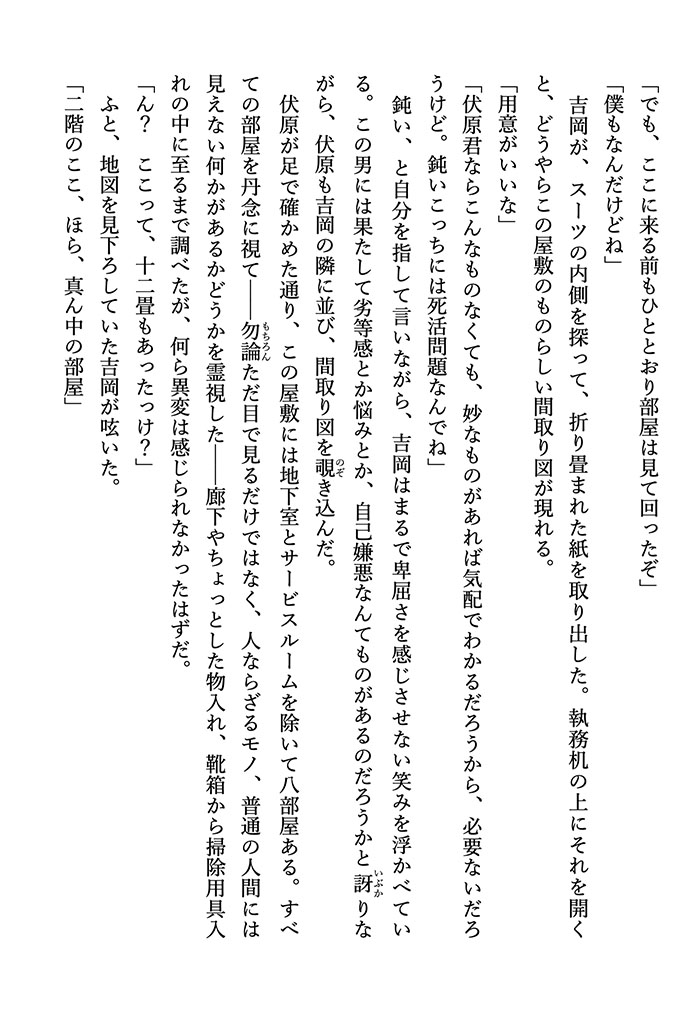 「でも、ここに来る前もひととおり部屋は見て回ったぞ」
「僕もなんだけどね」
　吉岡が、スーツの内側を探って、折り畳まれた紙を取り出した。執務机の上にそれを開く
と、どうやらこの屋敷のものらしい間取り図が現れる。
「用意がいいな」
「伏原君ならこんなものなくても、妙なものがあれば気配でわかるだろうから、必要ないだろ
うけど。鈍いこっちには死活問題なんでね」
　鈍い、と自分を指して言いながら、吉岡はまるで卑屈さを感じさせない笑みを浮かべてい
る。この男には果たして劣等感とか悩みとか、自己嫌悪なんてものがあるのだろうかと訝りな
がら、伏原も吉岡の隣に並び、間取り図を覗き込んだ。
　伏原が足で確かめた通り、この屋敷には地下室とサービスルームを除いて八部屋ある。すべ
ての部屋を丹念に視て――勿論ただ目で見るだけではなく、人ならざるモノ、普通の人間には
見えない何かがあるかどうかを霊視した――廊下やちょっとした物入れ、靴箱から掃除用具入
れの中に至るまで調べたが、何ら異変は感じられなかったはずだ。
「ん？　ここって、十二畳もあったっけ？」
　ふと、地図を見下ろしていた吉岡が呟いた。
「二階のここ、ほら、真ん中の部屋」